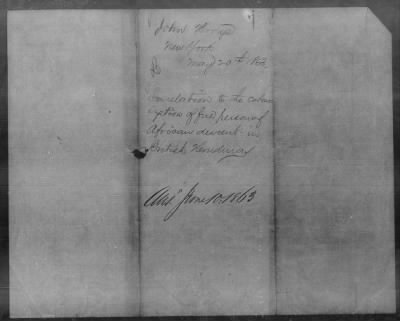 John
New York
May 20th 1863
In relation to the colon-
ization of free persons of
African descent in
British Honduras
Ansd June 10. 1863